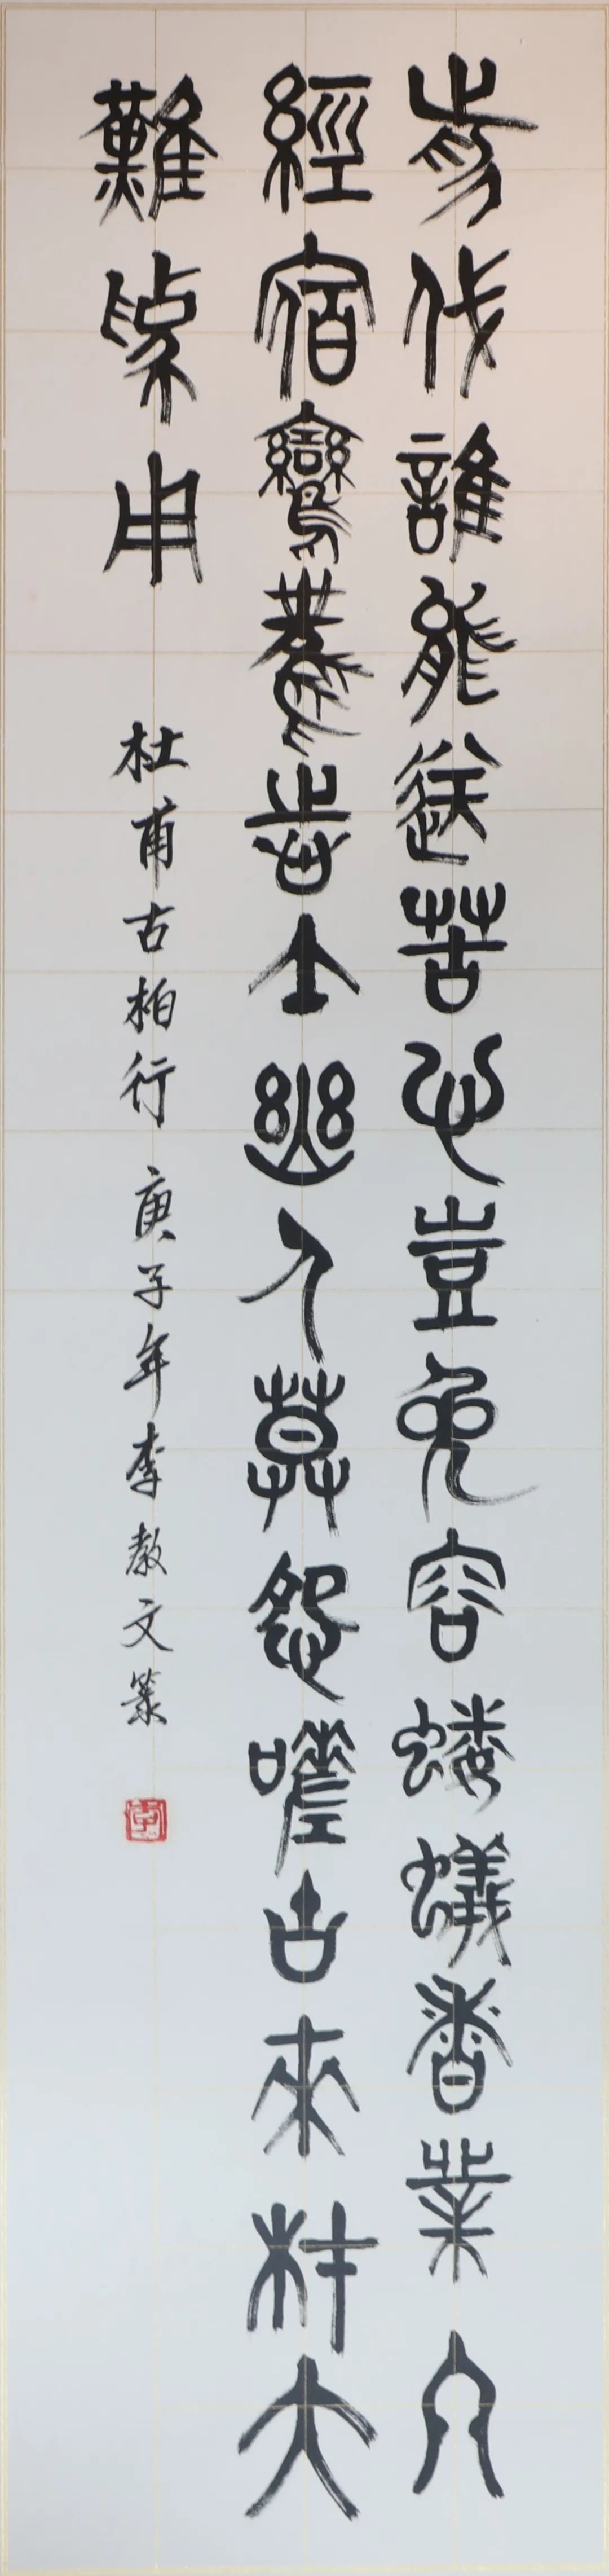 剪伐誰能送苦心豈免容螻蟻香葉終
經宿鸞鳳志士幽人莫怨嗟古來材大
難為用
杜甫古柏行 庚子年李教文篆
李